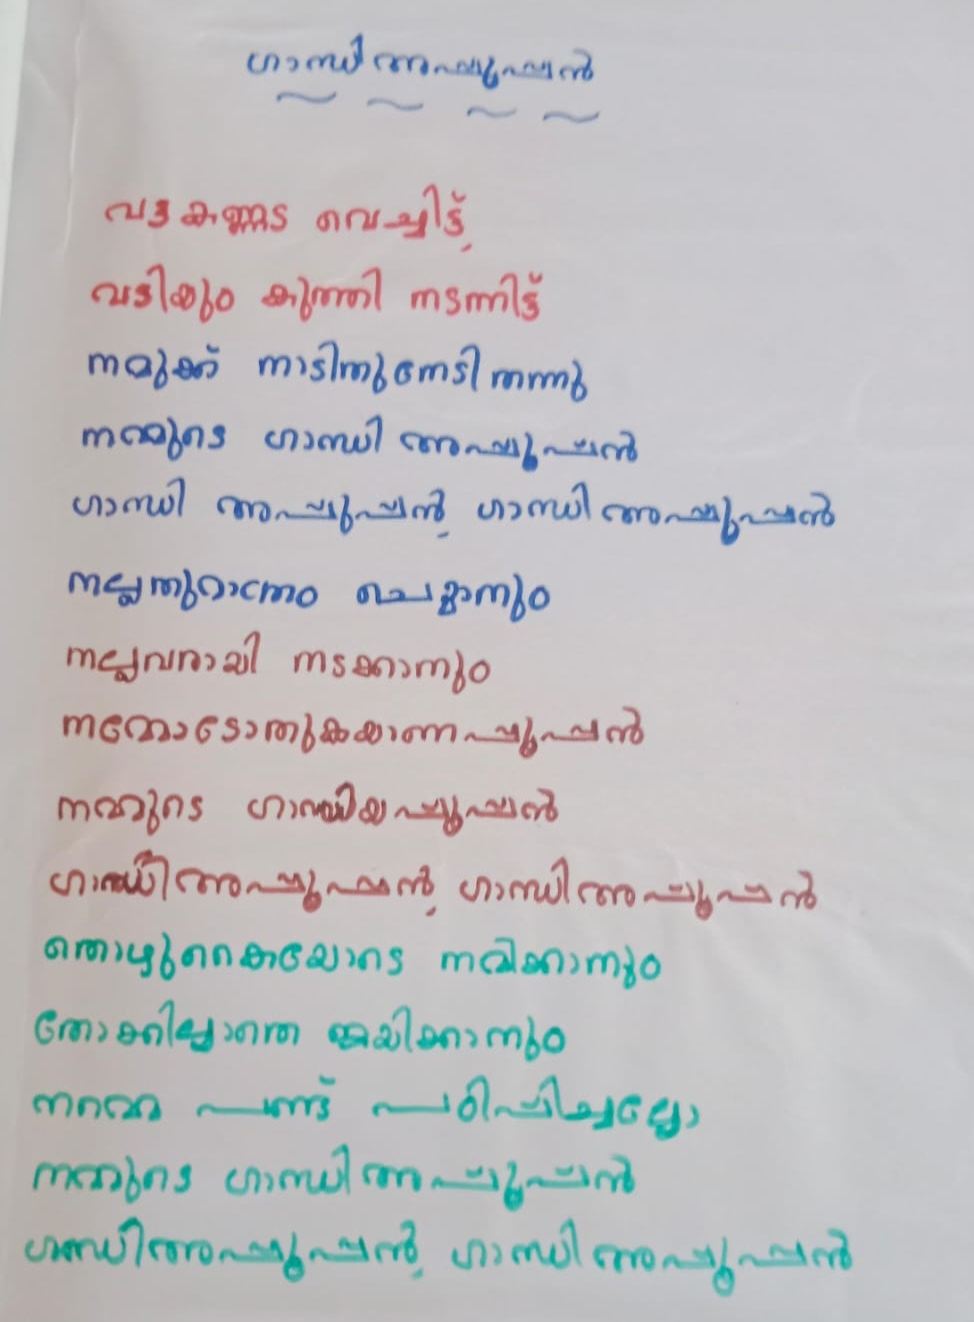 ഗാന്ധി അപ്പൂപ്പൻ
വട്ടകണ്ണട വെച്ചിട്ട്,
വടിയും കുത്തി നടന്നിട്ട്
നമുക്ക് നാടിതു നേടി തന്നു
നമ്മുടെ ഗാന്ധി അപ്പൂപ്പൻ
ഗാന്ധി അപ്പൂപ്പൻ, ഗാന്ധി അപ്പൂപ്പൻ
നല്ലതുമാത്രം ചെയ്യാനും
നല്ലവരായി നടക്കാനും
നമ്മോടോതുകയാണപ്പൂപ്പൻ
നമ്മുടെ ഗാന്ധിയപ്പൂപ്പൻ
ഗാന്ധി അപ്പൂപ്പൻ, ഗാന്ധി അപ്പൂപ്പൻ
തൊഴുകൈയോടെ നമിക്കാനും
തോക്കില്ലാതെ ജയിക്കാനും
നമ്മെ പണ്ട് പഠിപ്പിച്ചല്ലോ
നമ്മുടെ ഗാന്ധി അപ്പൂപ്പൻ
ഗാന്ധി അപ്പൂപ്പൻ, ഗാന്ധി അപ്പൂപ്പൻ